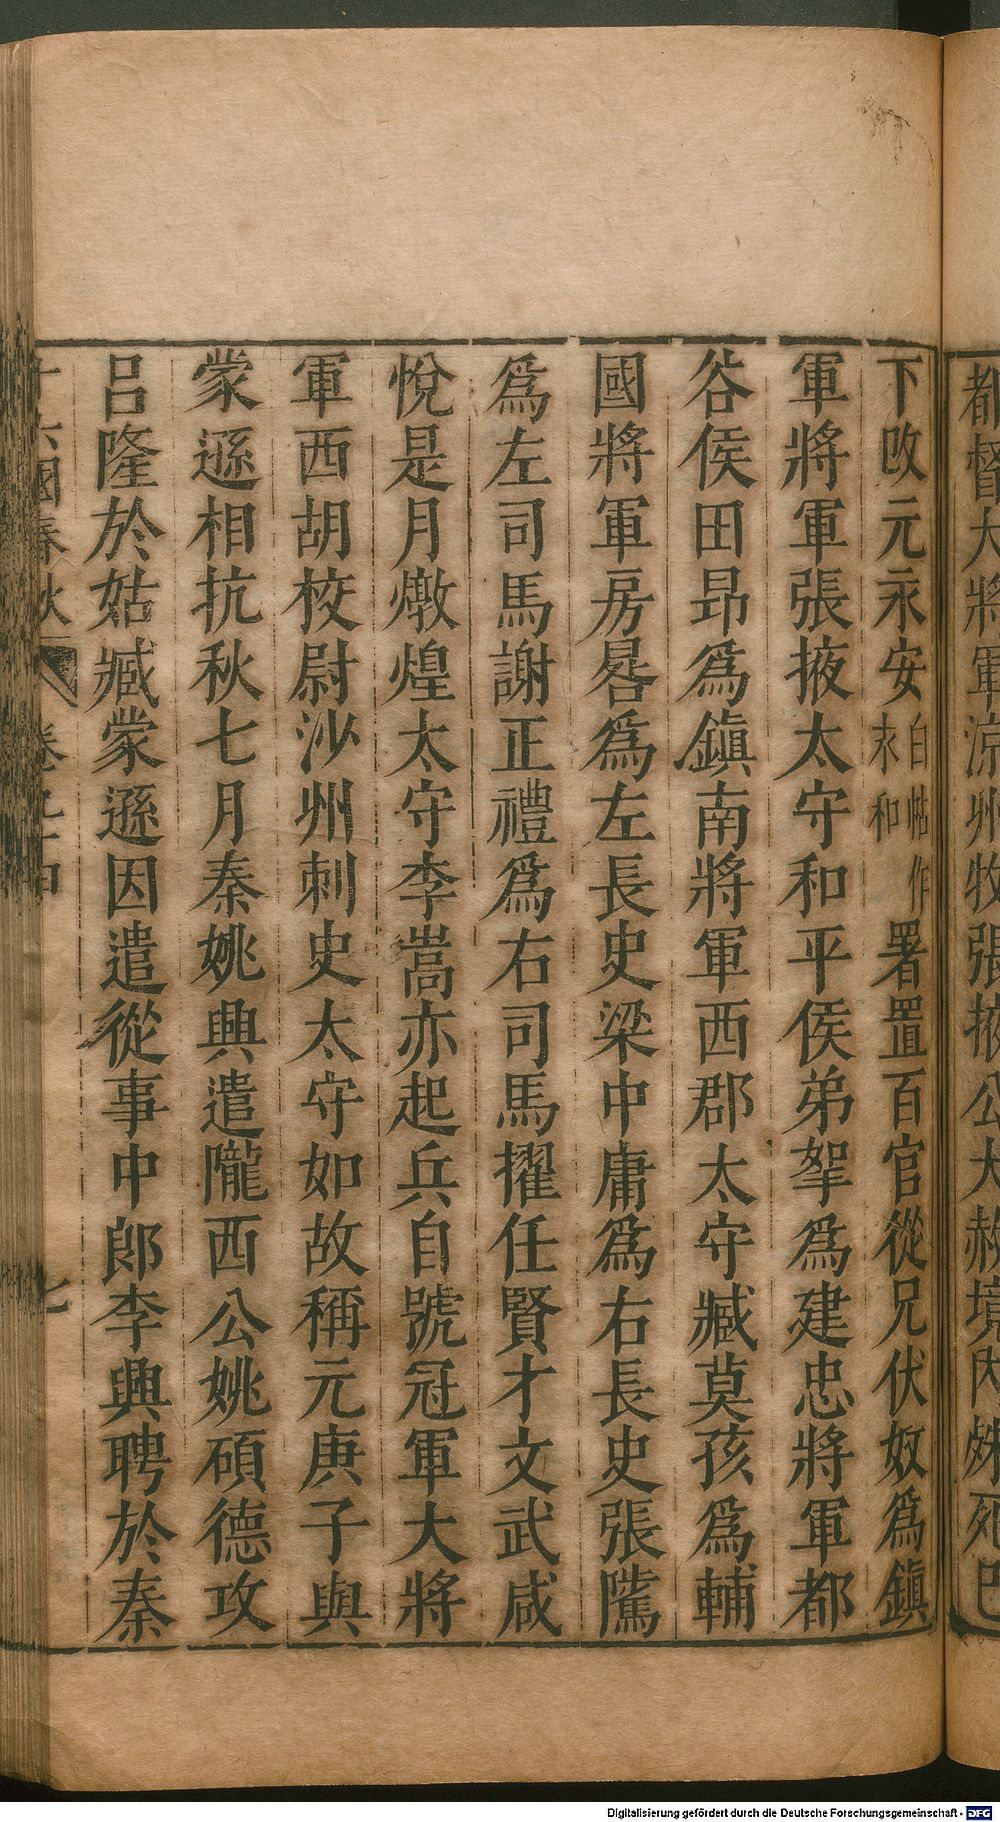 都督大將軍涼州牧張掖公大赦境内殊死已
下改元永安白帖作永和署置百官從兄伏奴為鎮
軍將軍張掖太守和平侯弟挐為建忠將軍都
谷侯田昂為鎮南將軍西郡太守臧莫孩為輔
國將軍房晷為左長史梁中庸為右長史張隲
為左司馬謝正禮為右司馬擢任賢才文武咸
悅是月燉煌太守李暠亦起兵自號冠軍大將
軍西胡校尉沙州刺史太守如故稱元庚子與
蒙遜相抗秋七月秦姚興遣隴西公姚碩德攻
呂隆於姑臧蒙遜因遣從事中郎李興聘於秦
十六國春秋 卷九十四 七
Digitalisierung gefördert durch die Deutsche Forschungsgemeinschaft - DFG